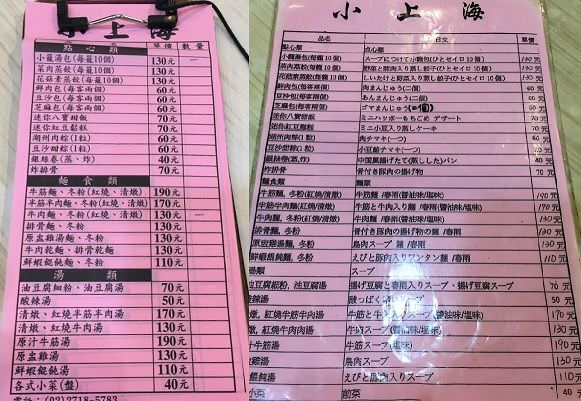 小上海
點心類 單價 數量
小籠湯包(每籠10個) 130元 一
菜肉蒸餃(每籠10個) 130元
花菇素蒸餃(每籠10個) 130元
鮮肉包(每客兩個) 60元
豆沙包(每客兩個) 60元
芝麻包(每客兩個) 60元
迷你八寶甜飯 70元
迷你紅豆鬆糕 70元
湖州肉粽(1粒) 60元
豆沙甜粽(1粒) 60元
銀絲卷(蒸、炸) 40元
炸排骨 70元
麵食類
牛筋麵、冬粉(紅燒、清燉) 190元
半筋半肉麵、冬粉(紅燒、清燉) 170元
牛肉麵、冬粉(紅燒、清燉) 130元 一
排骨麵、冬粉 130元
原盅雞湯麵、冬粉 130元
牛肉乾麵、排骨乾麵 130元
鮮蝦餛飩麵、冬粉 110元
湯類
油豆腐細粉、油豆腐湯 70元
酸辣湯 50元
清燉、紅燒半筋半肉湯 170元
清燉、紅燒牛肉湯 130元
原汁牛筋湯 190元
原盅雞湯 130元
鮮蝦餛飩湯 110元
各式小菜(盤) 40元
電話：(02)2718-5783
小上海
品名 日文 單價
點心類 点心類
小籠湯包(每籠10個) スープにつけて小籠包(ひとセイロ10個) 130元
菜肉蒸餃(每籠10個) 野菜と豚肉入り蒸し餃子(ひとセイロ10個) 130元
花菇素蒸餃(每籠10個) しいたけと野菜入り蒸し餃子(ひとセイロ10個) 130元
鮮肉包(每客兩個) 肉まんじゅう(二個) 60元
豆沙包(每客兩個) あんまんじゅう(二個) 60元
芝麻包(每客兩個) ゴマまんじゅう(二個) 60元
迷你八寶甜飯 ミニハッポーもちごめ デザート 70元
迷你紅豆鬆糕 ミニ小豆入り蒸しケーキ 70元
湖州肉粽(1粒) 肉チマキ(一つ) 60元
豆沙甜粽(1粒) 小豆餡チマキ(一つ) 60元
銀絲卷(蒸,炸) 中国風揚げたて(蒸しした)パン 40元
炸排骨 骨付き豚肉の揚げ物 70元
麵食類 麺類
牛筋麵,冬粉(紅燒/清燉) 牛筋麺/春雨(醬油味/塩味) 190元
半筋半肉麵(紅燒/清燉) 牛筋と牛肉入り麺/春雨(醬油味/塩味) 170元
牛肉麵,冬粉(紅燒/清燉) 牛肉麺/春雨(醬油味/塩味) 130元
排骨麵,冬粉 骨付き豚肉の揚げ物の麺/春雨 130元
原盅雞湯麵,冬粉 鳥肉スープ麺/春雨 130元
鮮蝦餛飩麵,冬粉 えびと豚肉入りワンタン麺/春雨 110元
湯類 スープ
油豆腐細粉,油豆腐湯 揚げ豆腐と春雨スープ、揚げ豆腐スープ 70元
酸辣湯 酸っぱくからいスープ 50元
燉,紅燒半筋半肉湯 牛筋と牛肉入りスープ(醬油味/塩味) 170元
燉,紅燒牛肉湯 牛肉スープ(醬油味/塩味) 130元
汁牛筋湯 牛筋スープ 190元
盅雞湯 鳥肉スープ 130元
餛飩湯 えびと豚肉入りスープ 110元
小菜 前菜 40元